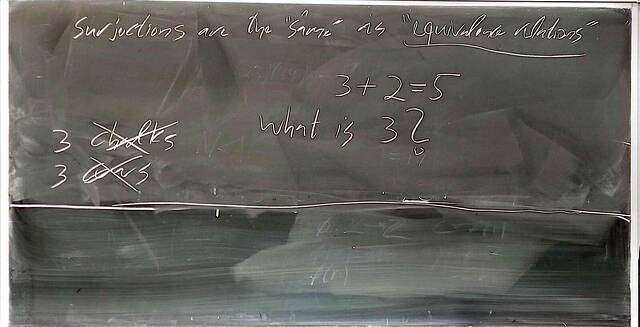 Surjections are the "same" as "equivalence relations"
3 + 2 = 5
What is 3?
3 chalks
3 cows